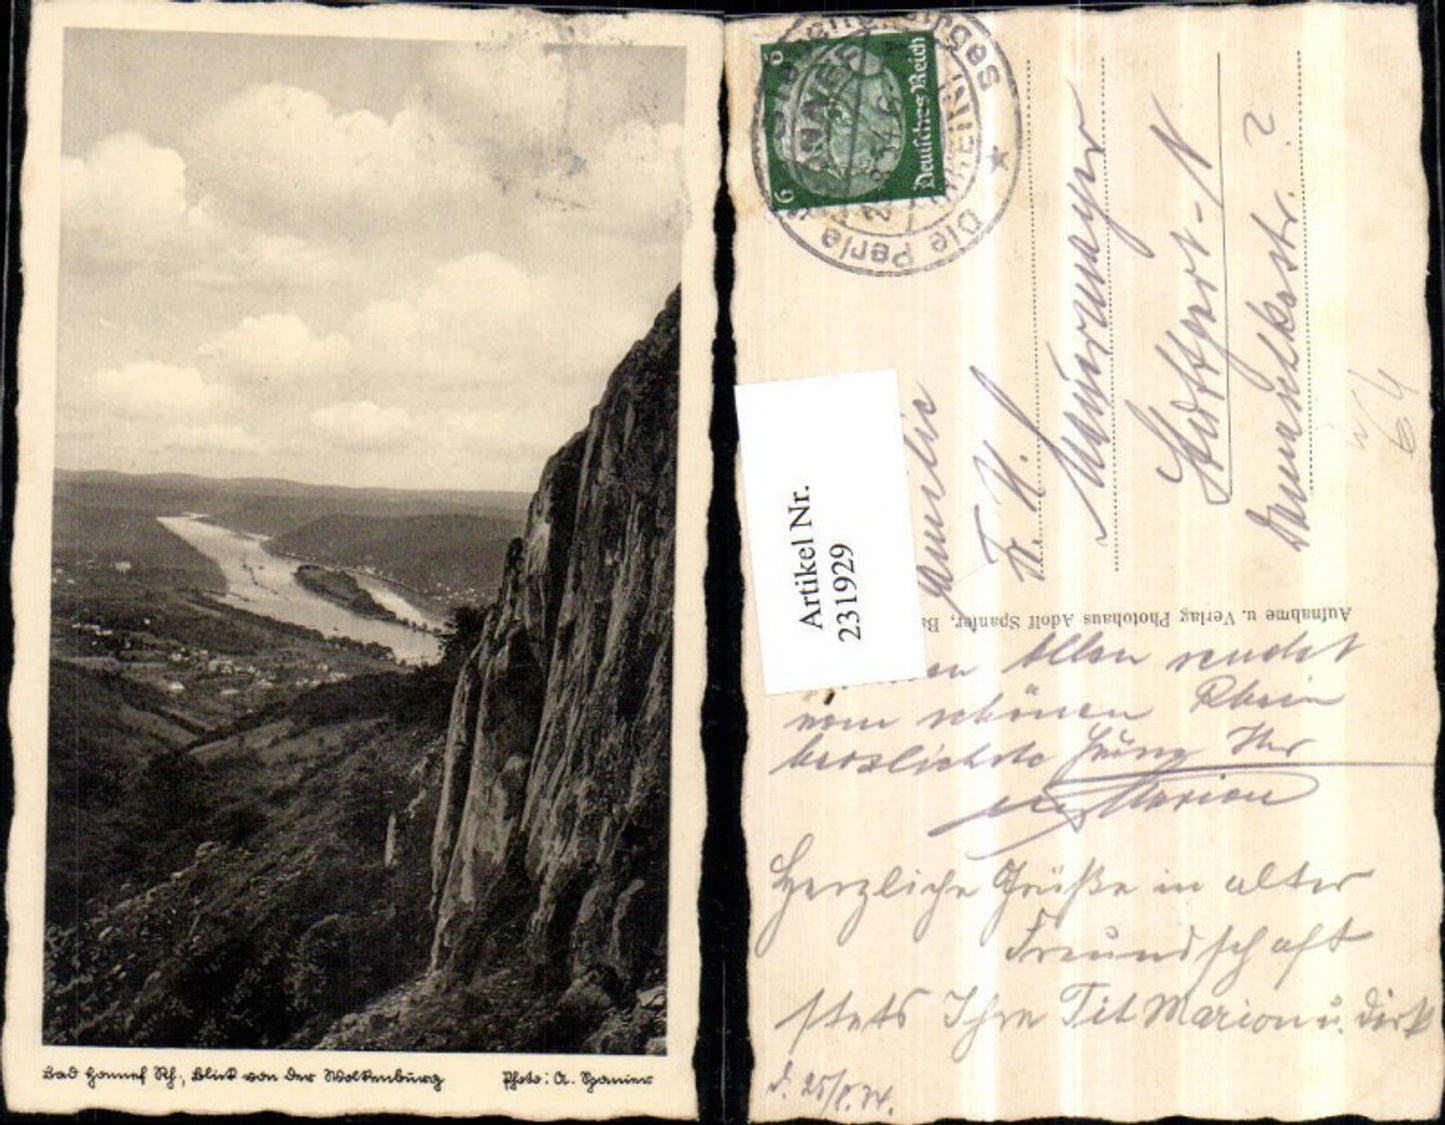 Bad Honnef Rh., Blick von der Wolkenburg
Photo: A. Spanier
6
6
Deutsches Reich
Die Perle
Artikel Nr.
231929
Aufnahme u. Verlag Photohaus Adolf Spanier, Ba
Familie
Fr. H.
Stuttgart-N
?
64
Allen sendet
vom schönen Rhein
herzlichste Ihr
Marion
Herzliche Grüße in alter
Freundschaft
stets Ihre Marion u. Dirk
d. 25/8. 34.